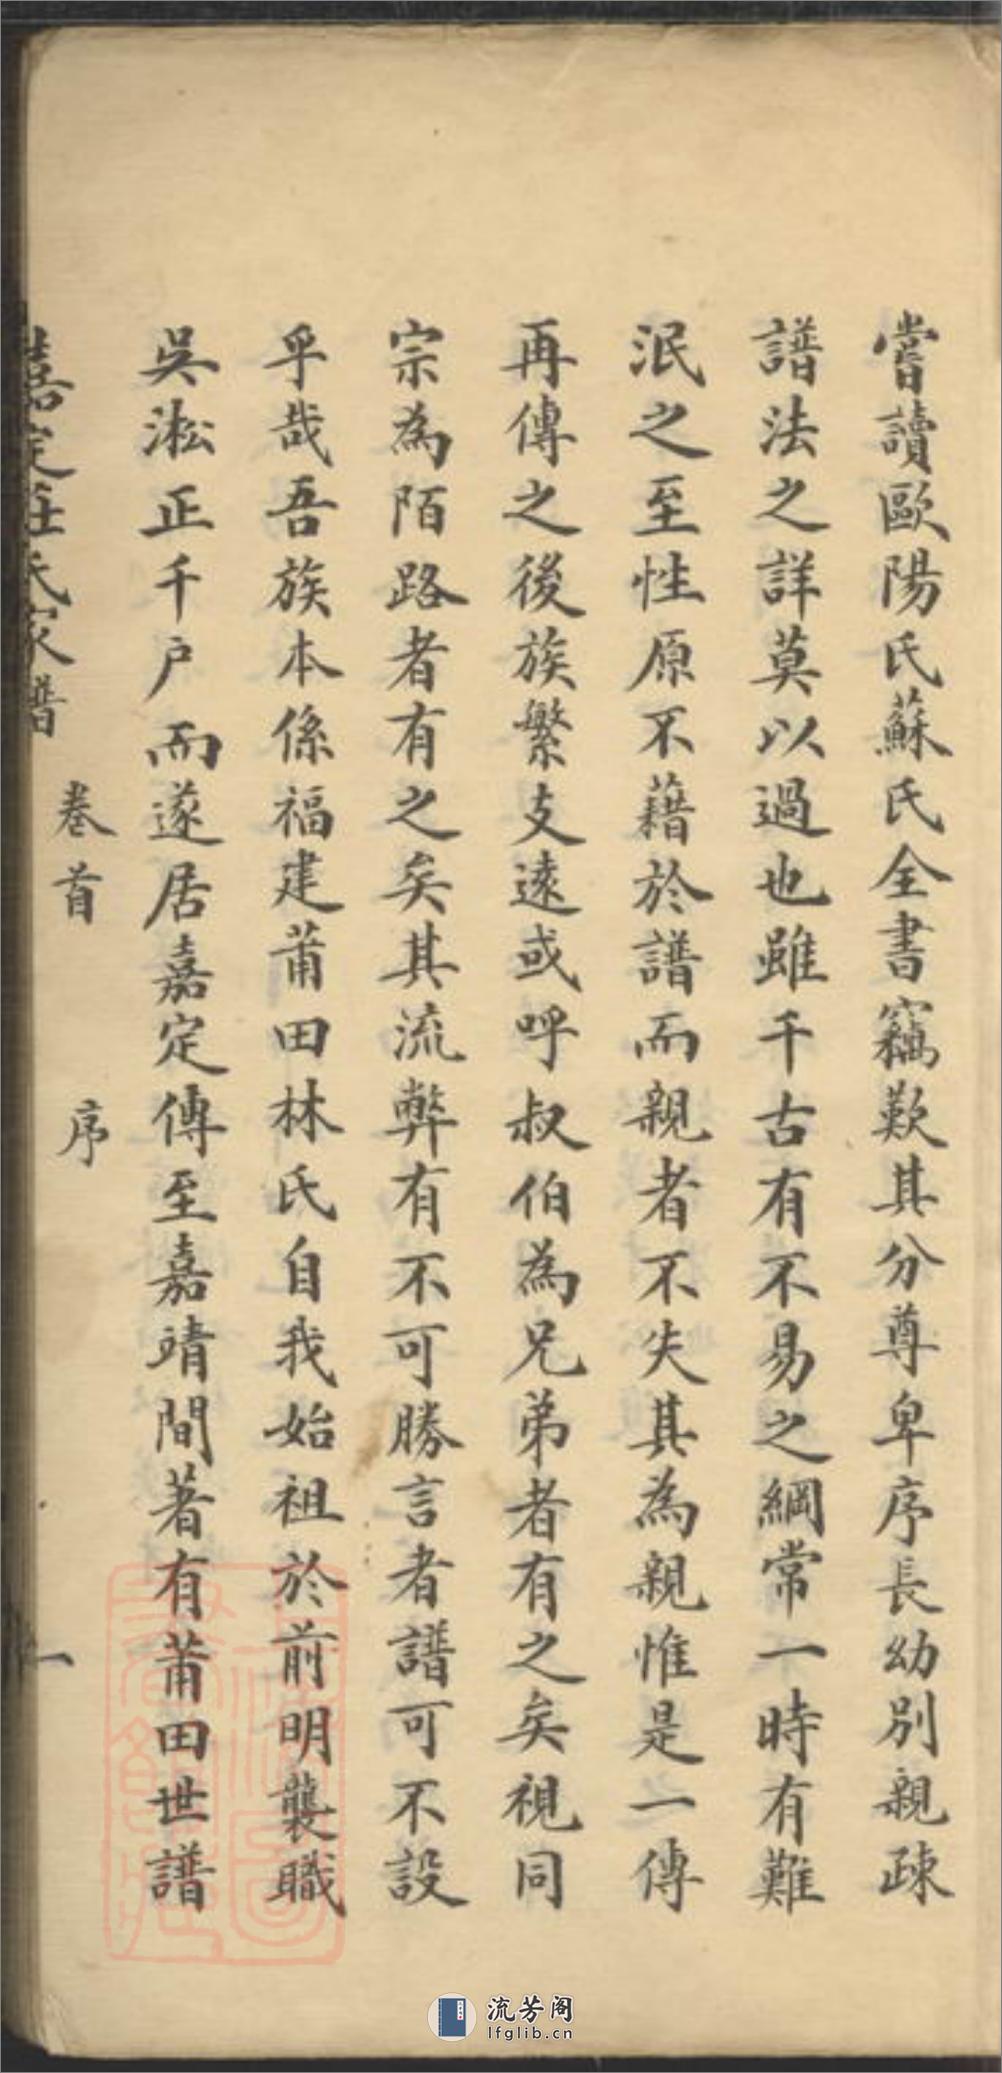 嘗讀歐陽氏蘇氏全書竊歎其分尊卑序長幼別親疎
譜法之詳莫以過也雖千古有不易之綱常一時有難
泯之至性原不藉於譜而親者不失其為親惟是一傳
再傳之後族繁支遠或呼叔伯為兄弟者有之矣視同
宗為陌路者有之矣其流弊有不可勝言者譜可不設
乎哉吾族本係福建莆田林氏自我始祖於前明襲職
吳淞正千户而遂居嘉定傳至嘉靖間著有莆田世譜
嘉定莊氏家譜 卷首 序 一
流芳阁
lfglib.cn